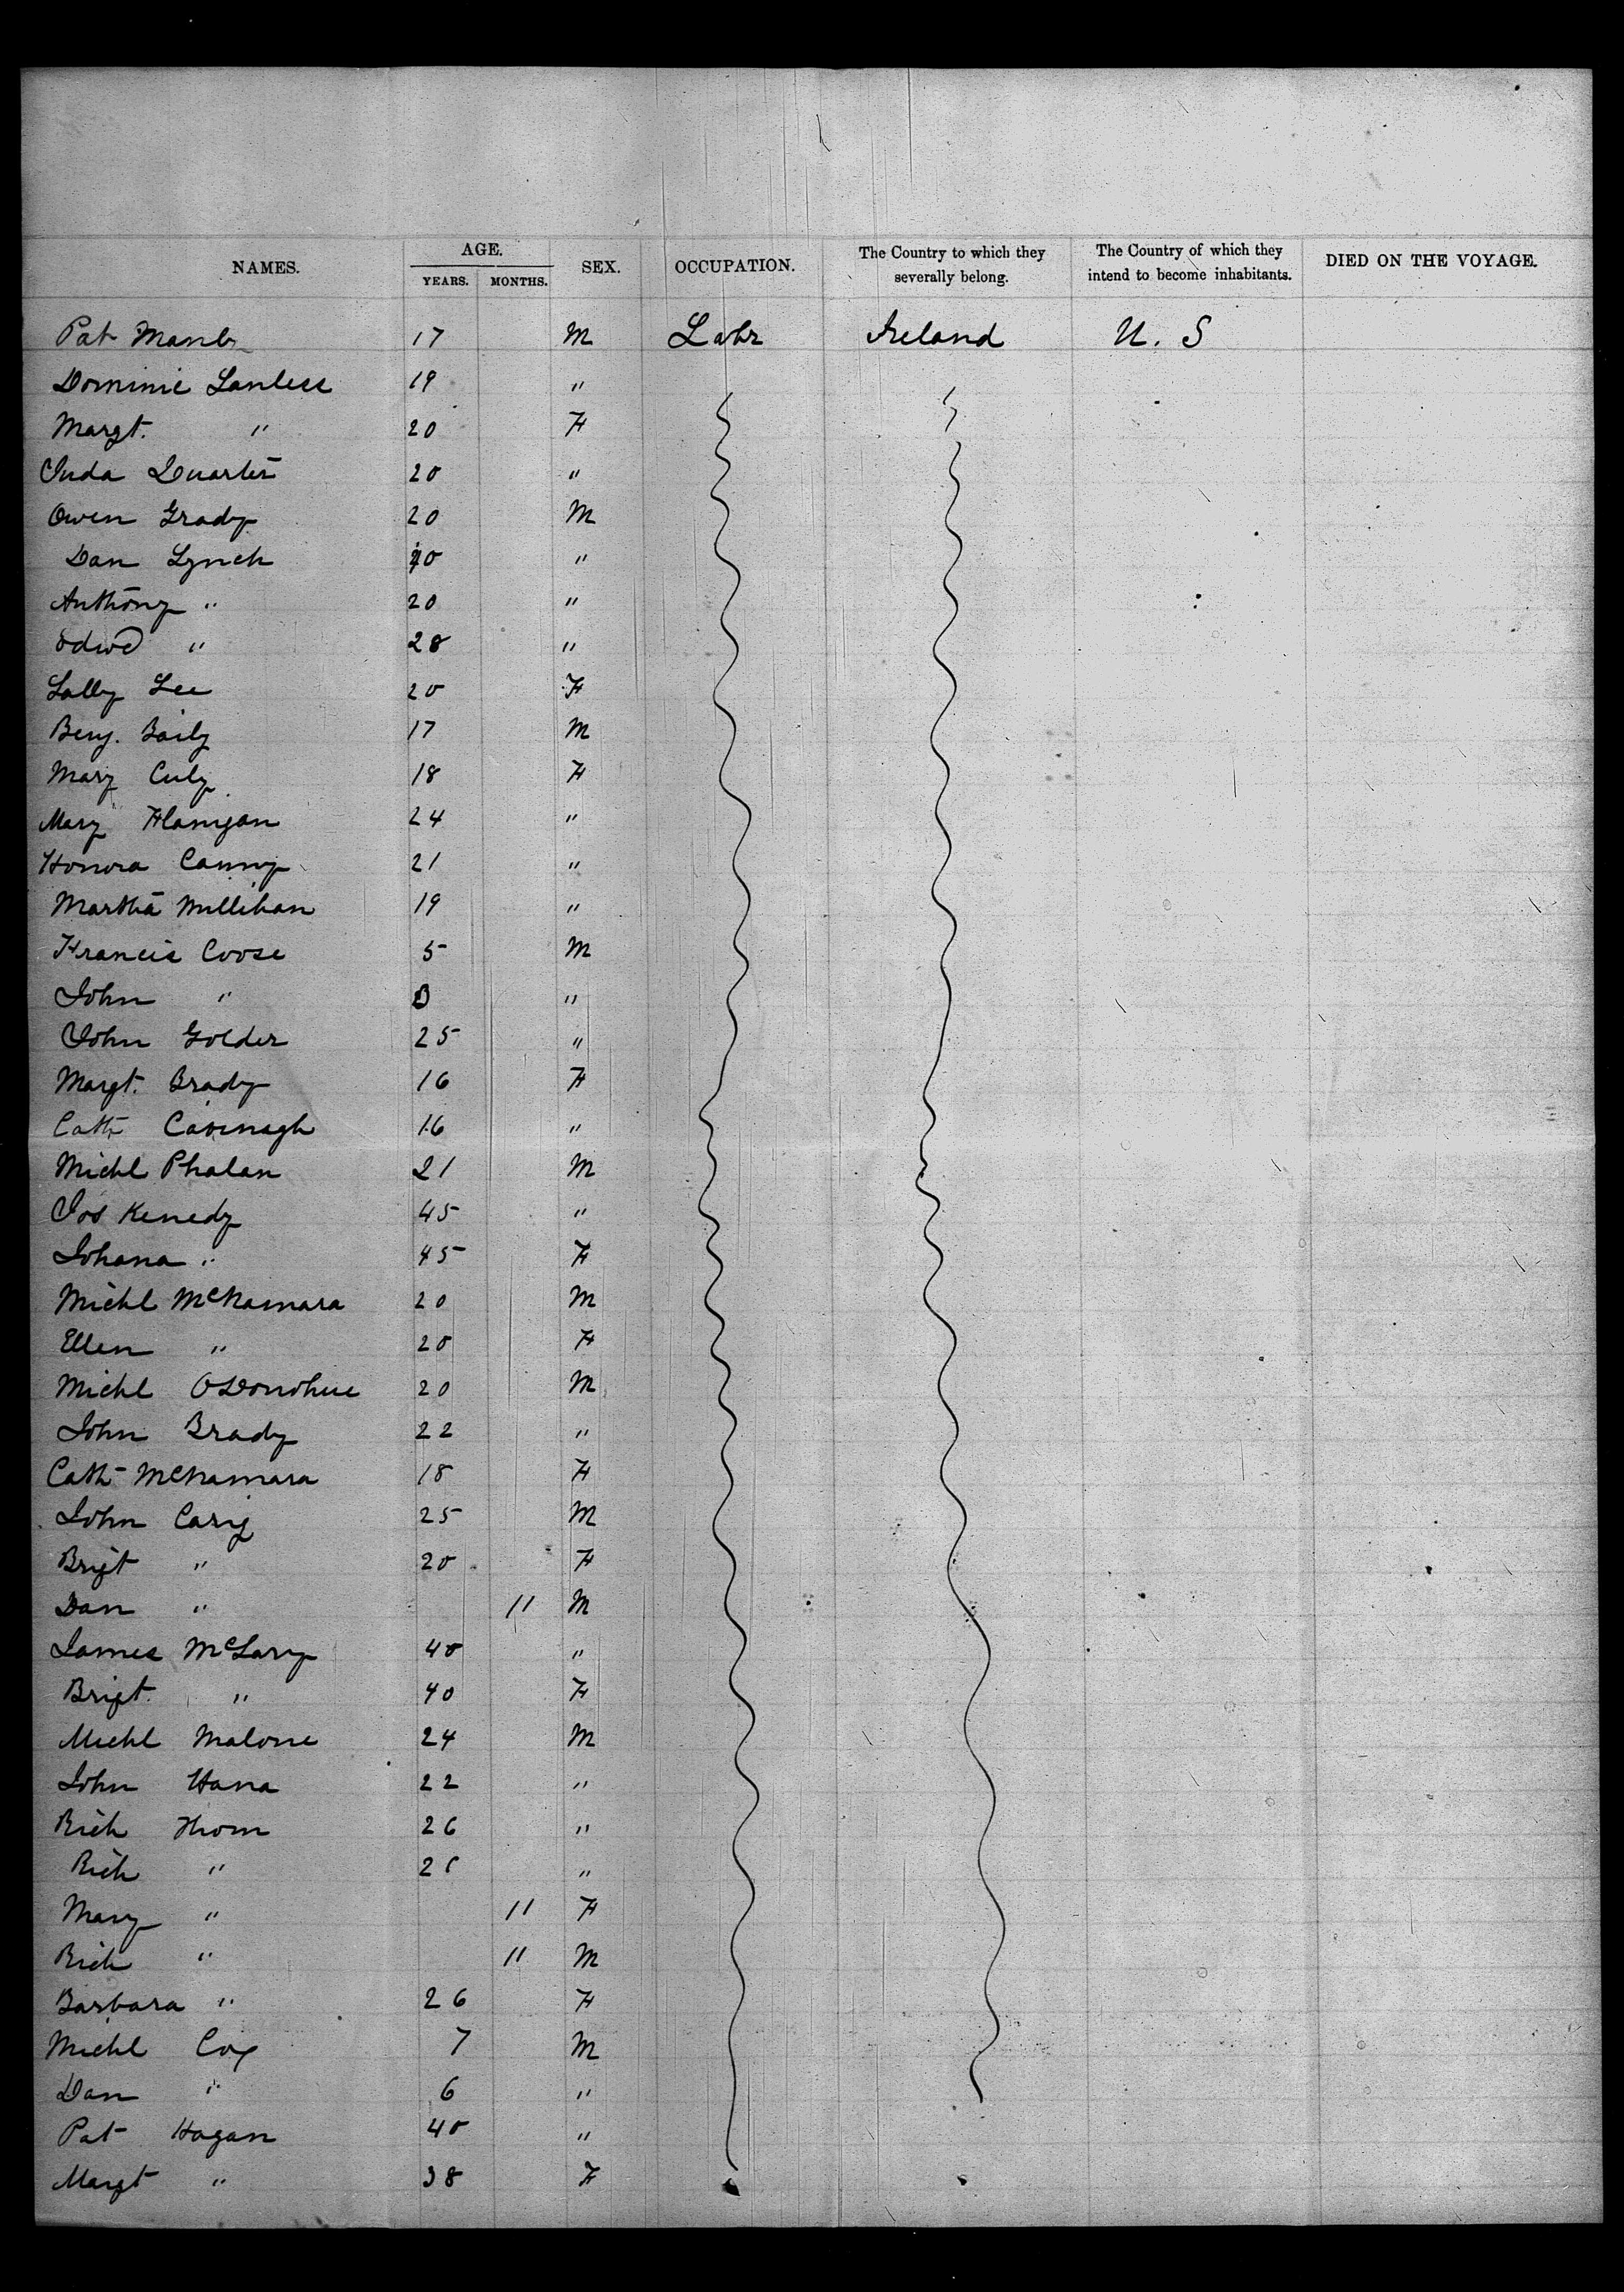 NAMES. AGE. YEARS. MONTHS. SEX. OCCUPATION. The Country to which they severally belong. The Country of which they intend to become inhabitants. DIED ON THE VOYAGE.
Pat 17 M Labr Ireland U. S
Dominic Lawless 19 "
Margt. " 20 F
20 "
Owen Grady 20 M
Dan Lynch "
Anthony " 20 "
Edwd " 28 "
Sally Lee 20 F
Benj. Baily 17 M
Mary Culy 18 F
Mary Flanigan 24 "
Honora 21 "
Martha Mullihan 19 "
Francis Coose 5 M
John " "
John Golder 25 "
Margt. Brady 16 F
Cath Cavenagh 16 "
Michl Phalan 21 M
Jos Kenedy 45 "
Johana " 45 F
Michl McNamara 20 M
Ellen " 20 F
Michl ODonohue 20 M
John Brady 22 "
Cath McNamara 18 F
John Carig 25 M
Brigt " 20 F
Dan " 11 M
James 40 "
Brigt. " 40 F
Michl Malone 24 M
John Hana 22 "
Rich Thom 26 "
Rich " "
Mary " 11 F
Rich " 11 M
Barbara " 26 F
Michl Cox 7 M
Dan " 6 "
Pat Hogan 40 "
Margt " 38 F